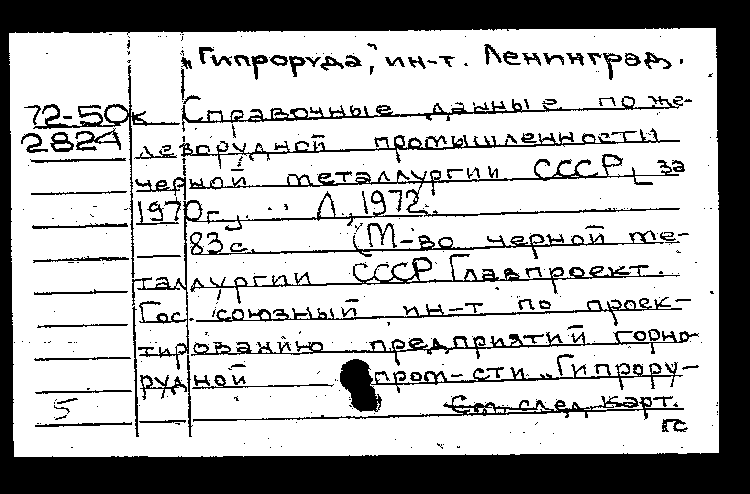 „Гипроруда," ин-т. Ленинград.
72-50к Справочные данные по же-
2824 лезорудной промышленности
черной металлургии СССР за
1970г. Л, 1972.
83с. (М-во черной ме-
таллургии СССР Главпроект.
Гос. союзный ин-т по проек-
тированию предприятий горно-
рудной пром-сти „Гипрору-
5 См. след. карт.
ГС